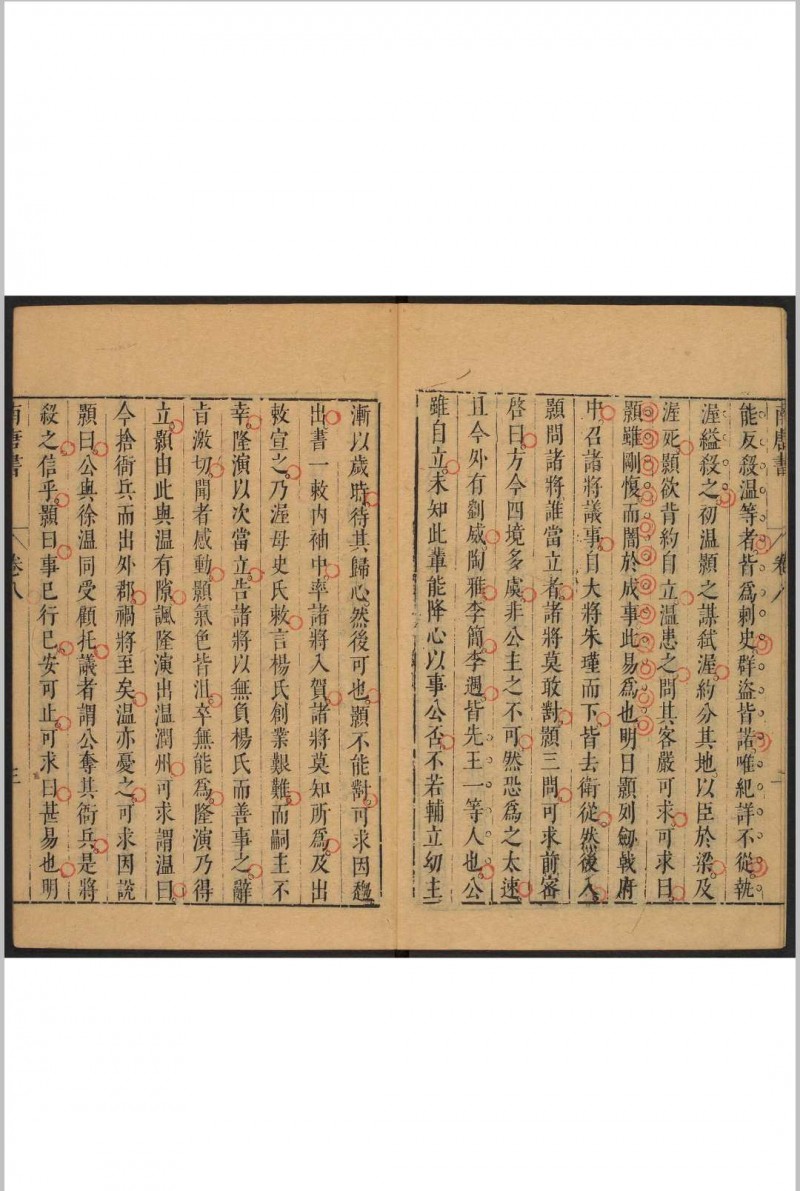 能反殺温等者皆爲刺史群盜皆諾唯紀詳不從執
渥縊殺之初温顥之謀弑渥約分其地以臣於梁及
渥死顥欲背約自立温患之問其客嚴可求可求曰
顥雖剛愎而闇於成事此易爲也明日顥列劔戟府
中召諸將議事自大將朱瑾而下皆去衛從然後入
顥問諸將誰當立者諸將莫敢對顥三問可求前審
啓曰方今四境多虞非公主之不可然恐爲之太速
且今外有劉威陶雅李簡李遇皆先王一等人也公
雖自立未知此輩能降心以事公否不若輔立幼主
漸以歲時待其歸心然後可也顥不能對可求因趨
出書一敎内袖中率諸將入賀諸將莫知所爲及出
敎宣之乃渥母史氏敎言楊氏創業艱難而嗣王不
幸隆演以次當立告諸將以無負楊氏而善事之辭
旨激切聞者感動顥氣色皆沮卒無能爲隆演乃得
立顥由此與温有隙諷隆演出温潤州可求謂温曰
今捨衙兵而出外郡禍將至矣温亦憂之可求因說
顥曰公與徐温同受顧托議者謂公奪其衙兵是將
殺之信乎顥曰事已行巳安可止可求曰甚易也明
南唐書
卷八
三